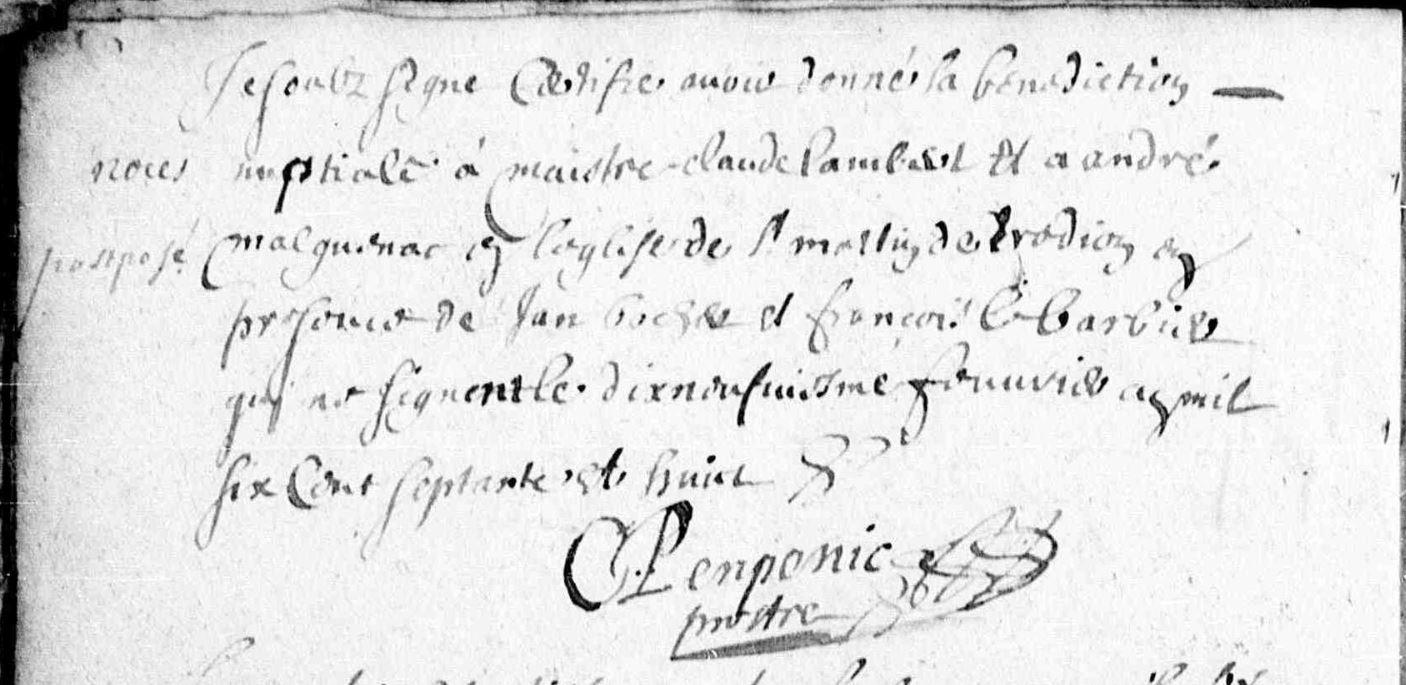 Je soubz signe Certifie avoir donné la benediction
noces nuptiale à maistre claude lambert et a andré
postposé malguenac en l'eglise de St martin de en
presence de Jan et françois le barbier
qui ne signent le dixneufuiesme feuurier an mil
six cent septante et huict
Penpenic
prestre